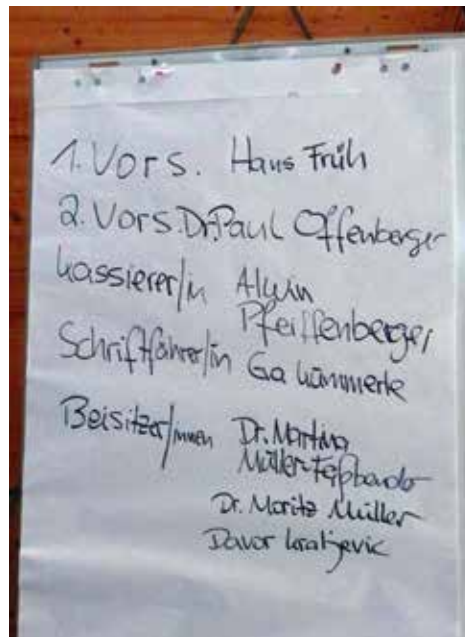 1. Vors. Hans Früh
2. Vors. Dr. Paul Offenberger
Kassierer/in Alwin
Pfeiffenberger
Schriftführer/in Ga Kümmerle
Beisitzer/innen Dr. Martina
Müller-
Dr. Moritz Müller
Davor